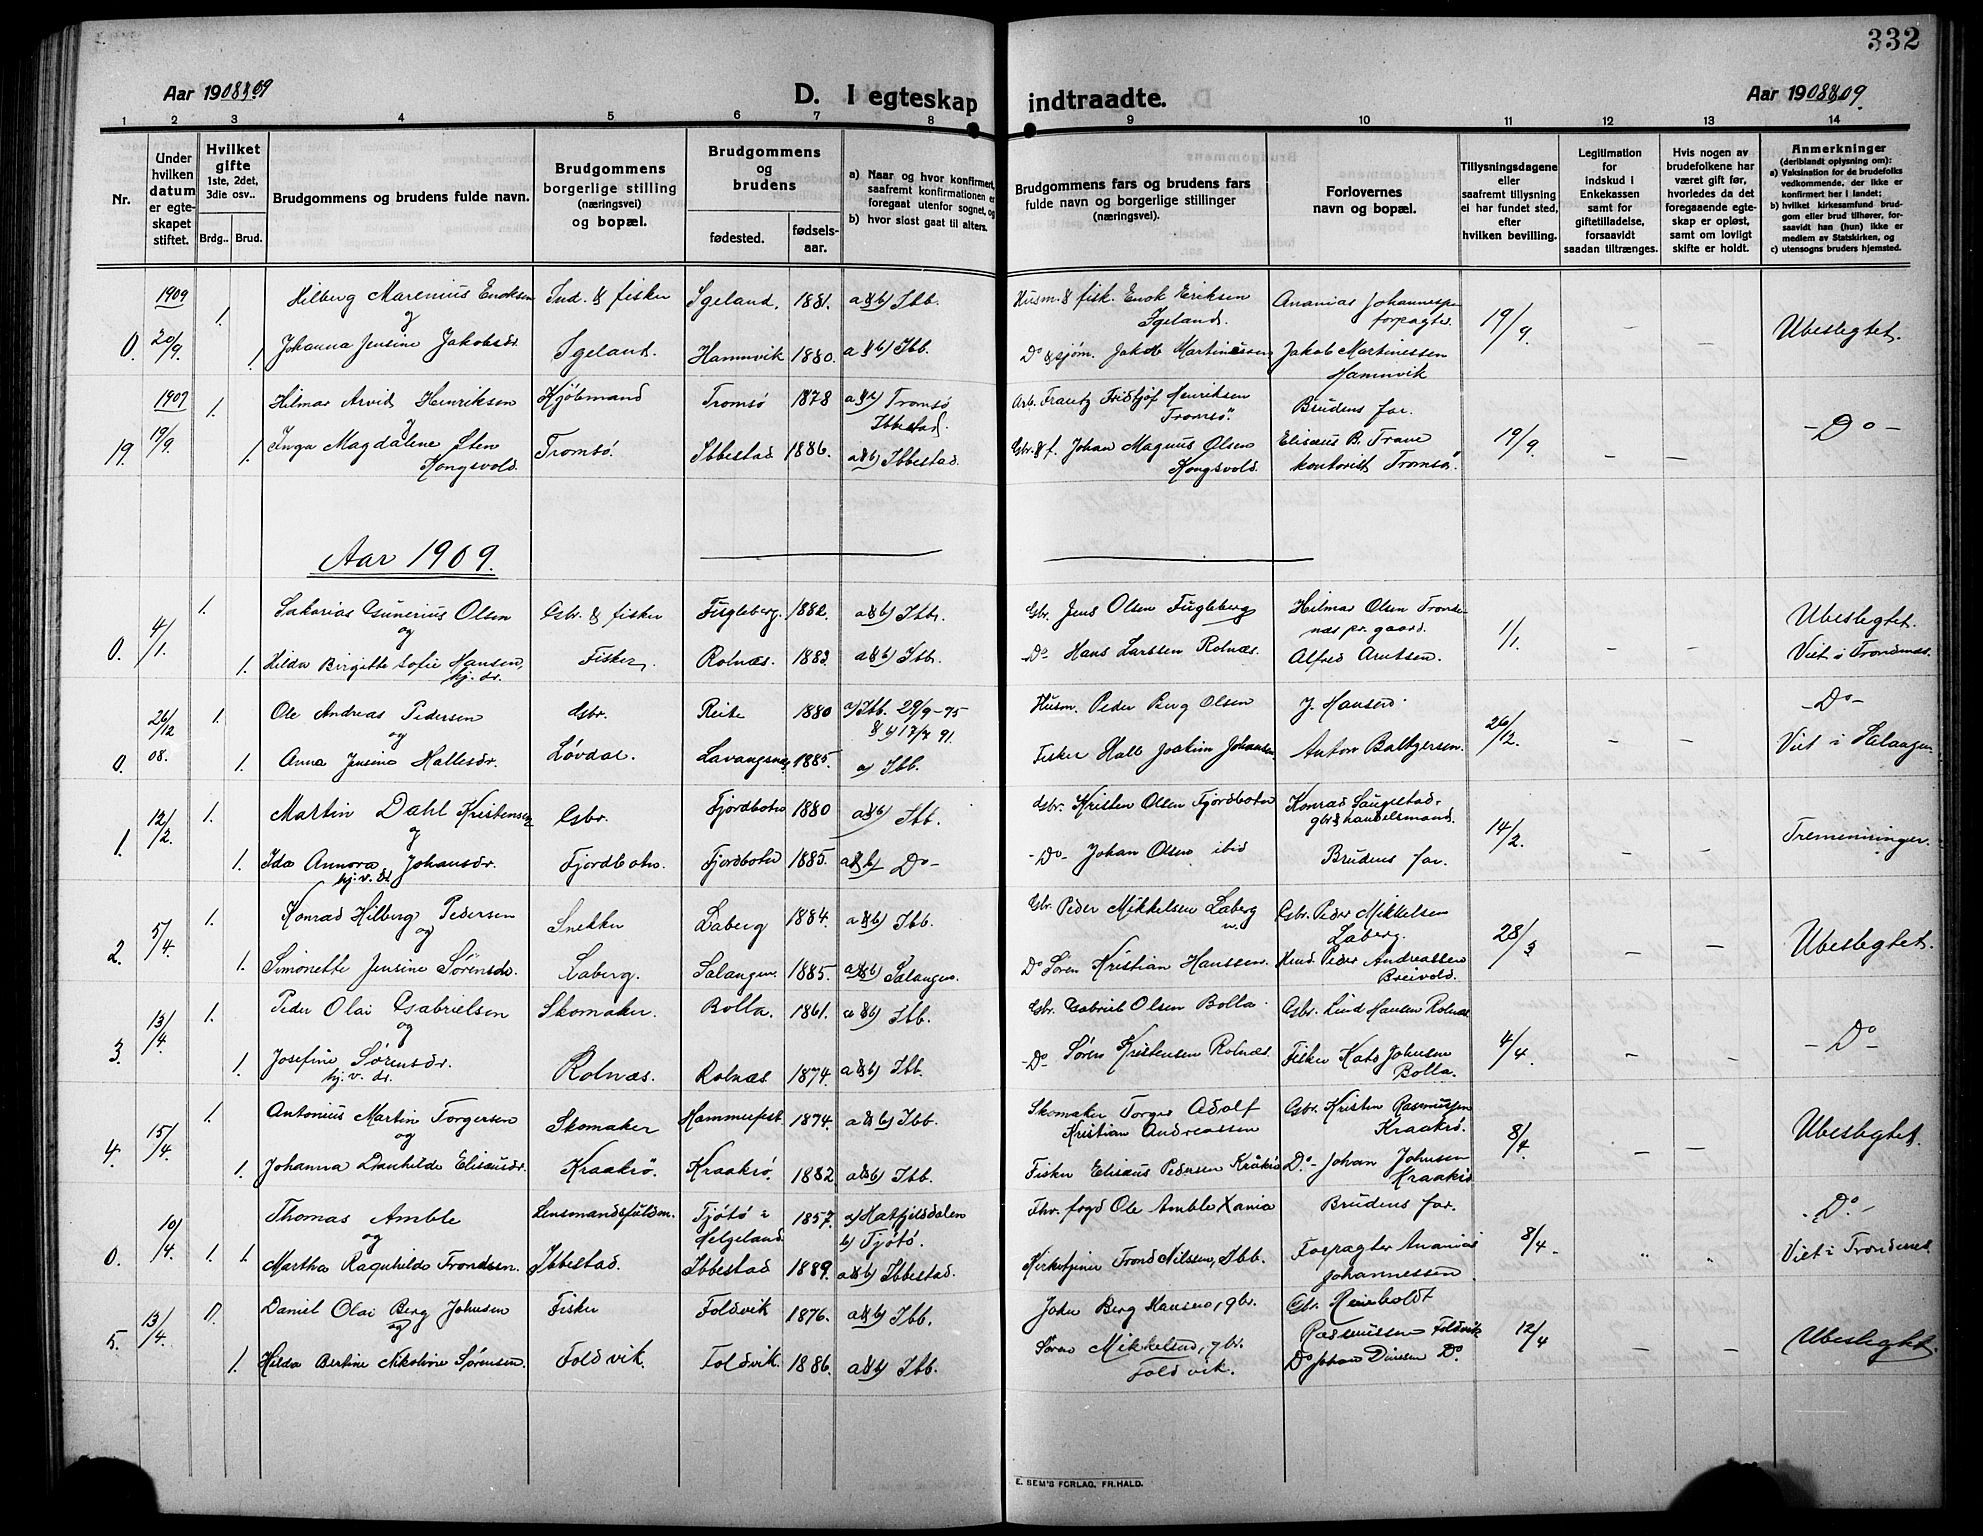 332
Aar 1908&09
D. I egteskap indtraadte.
Aar 1908&09.
1 2 3 4 5 6 7 8 9 10 11 12 13 14
Nr.
Under
hvilken
datum
er egte-
skapet
stiftet.
Hvilket
gifte
1ste, 2det,
3die osv..
Brdg..
Brud.
Brudgommens og brudens fulde navn.
Brudgommens
borgerlige stilling
(næringsvei)
og bopæl.
Brudgommens
og
brudens
fødested.
fødsels-
aar.
a) Naar og hvor konfirmert,
saafremt konfirmationen er
foregaat utenfor sognet, og
b) hvor sidst gaat til alters.
Brudgommens fars og brudens fars
fulde navn og borgerlige stillinger
(næringsvei).
Forlovernes
navn og bopæl.
Tillysningsdagene
eller
saafremt tillysning
ei har fundet sted,
efter
hvilken bevilling.
Legitimation
for
indskud i
Enkekassen
samt for
giftetilladelse,
forsaavidt
saadan tiltrænges.
Hvis nogen av
brudefolkene har
været gift før,
hvorledes da det
foregaaende egte-
skap er opløst,
samt om lovligt
skifte er holdt.
Anmerkninger
(deriblandt oplysning om):
a) Vaksination for de brudefolks
vedkommende, der ikke er
konfirmert her i landet;
b) hvilket kirkesamfund brud-
gom eller brud tilhører, for-
saavidt han (hun) ikke er
medlem av Statskirken, og
c) utensogns bruders hjemsted.
1909 1. Hilberg Marenius Enoksen Ind. & fisker Igeland. 1881. a&b) Ibb. Husm. & fisk. Enok Eriksen Ananias Johannesen
og Igeland. forpagter 19/9. - - Ubeslegtet.
0. 20/9. 1. Johanna Jensine Jakobsdr. Igeland. Hamnvik 1880. a&b) Ibb. Do & sjøm. Jakob Martinessen Jakob Martinessen
Hamnvik
1909 1. Hilmar Arvid Henriksen Kjøbmand Tromsø 1878 a&b) Tromsø Arb. Frantz Fridtjof Henriksen Brudens far.
og Ibbestad. Tromsø. 19/9. - - -Do-
19. 19/9. 1. Inga Magdalene Sten Tromsø. Ibbestad 1886. a&b) Ibbestad. Gbr. & f. Johan Magnus Olsen Elisæus B. Trane
Kongsvold. Kongsvold. kontorist Tromsø.
Aar 1909.
1. Sakarias Gunerius Olsen Gbr. & fisker Fugleberg. 1882. a&b) Ibb. Gbr. Jens Olsen Fugleberg Hilmar Olsen Tronde- Ubeslegtet.
0. 4/1. og næs pr. gaard. 1/1. - -
1. Hilda Birgitte Sofie Hansen, Fisker. Rolnæs. 1883. a&b) Ibb. -Do- Hans Larssen Rolnæs. Alfred Arntsen. Viet i Trondenæs.
hj. dr.
26/12 1. Ole Andreas Pedersen Gbr. Reite 1880 a) Ibb. 29/9-95 Husm. Peder Berg Olsen J. Hansen -Do-
og & b) 13/7 91. 26/12. - -
0. 08. 1. Anna Jensine Hallesdr. Løvdal. Lavangsnæs 1885. a) Ibb. Fisker Halb Joakim Johansen Anton Baltzersen. Viet i Salangen
12/2. 1. Martin Dahl Kristensen Gbr. Fjordbotn 1880 a&b) Ibb. Gbr. Kristen Olsen Fjordbotn Konrad Saugestad.
1. og gbr & handelsmand. 14/2. - - Tremenninger.
1. Ida Annora Johansdr. Fjordbotn. Fjordbotn 1885. a&b) Do- -Do- Johan Olsen ibid Brudens far.
hj. v. dr
5/4. 1. Konrad Hilberg Pedersen Snekker Laberg 1884. a&b) Ibb. Gbr. Peder Mikkelsen Laberg Gbr. Peder Mikkelsen
2. og Laberg. 28/3 - - Ubeslegtet.
1. Simonette Jensine Sørensdr. Laberg. Salangen. 1885. a&b) Salangen. Do Søren Kristian Hanssen. Peder Andreassen
Breivold.
13/4. 1. Peder Olai Gabrielsen Skomaker. Bolla. 1861. a&b) Ibb. Gbr. Gabriel Olsen Bolla. Gbr. Lind Hansen Rolnæs
3. og 4/4. - - -Do-
1. Josefine Sørensdr. Rolnæs. Rolnæs 1874. a&b) Ibb. -Do- Søren Kristensen Rolnæs. Fisker Kato Johnsen
hj. v. dr. Bolla.
15/4. 1. Antonius Martin Torgersen Skomaker Hammerfest 1874. a&b) Ibb. Skomaker Torger Adolf Gbr. Kristen Rasmussen
4. og Kristian Andreassen Kraakrø. 8/4. - - Ubeslegtet.
1. Johanna Danhilde Elisæusdr. Kraakrø. Kraakrø. 1882 a&b) Ibb. Fisker Elisæus Pedersen Kråkrø Do- Johan Johnsen
Kraakrø
10/4. 1. Thomas Amble Lensmandsfuldm. Tjøtø i 1857. a) Hatfjeldsdalen Fhv. fogd Ole Amble Xania Brudens far. -Do-
og Helgeland b) Tjøtø. 8/4. " "
0. 1. Martha Ragnhilde Trondsen. Ibbestad. Ibbestad 1889. a&b) Ibbestad. Kirketjener Trond Nilssen, Ibb. Forpagter Ananias Viet i Trondenes.
Johannessen
13/4. 1. Daniel Olai Berg Johnsen Fisker Foldvik 1876. a&b) Ibb. John Berg Hansen, gbr. Gbr. Reinholdt
5. og Rasmussen Foldvik 12/4 - - Ubeslegtet.
1. Hilda Bertine Nikoline Sørensen. Foldvik. Foldvik. 1886. a&b) Ibb. Søren Mikkelsen, gbr. Do Johan Do.
Foldvik.
E. SEM'S FORLAG, FR.HALD.